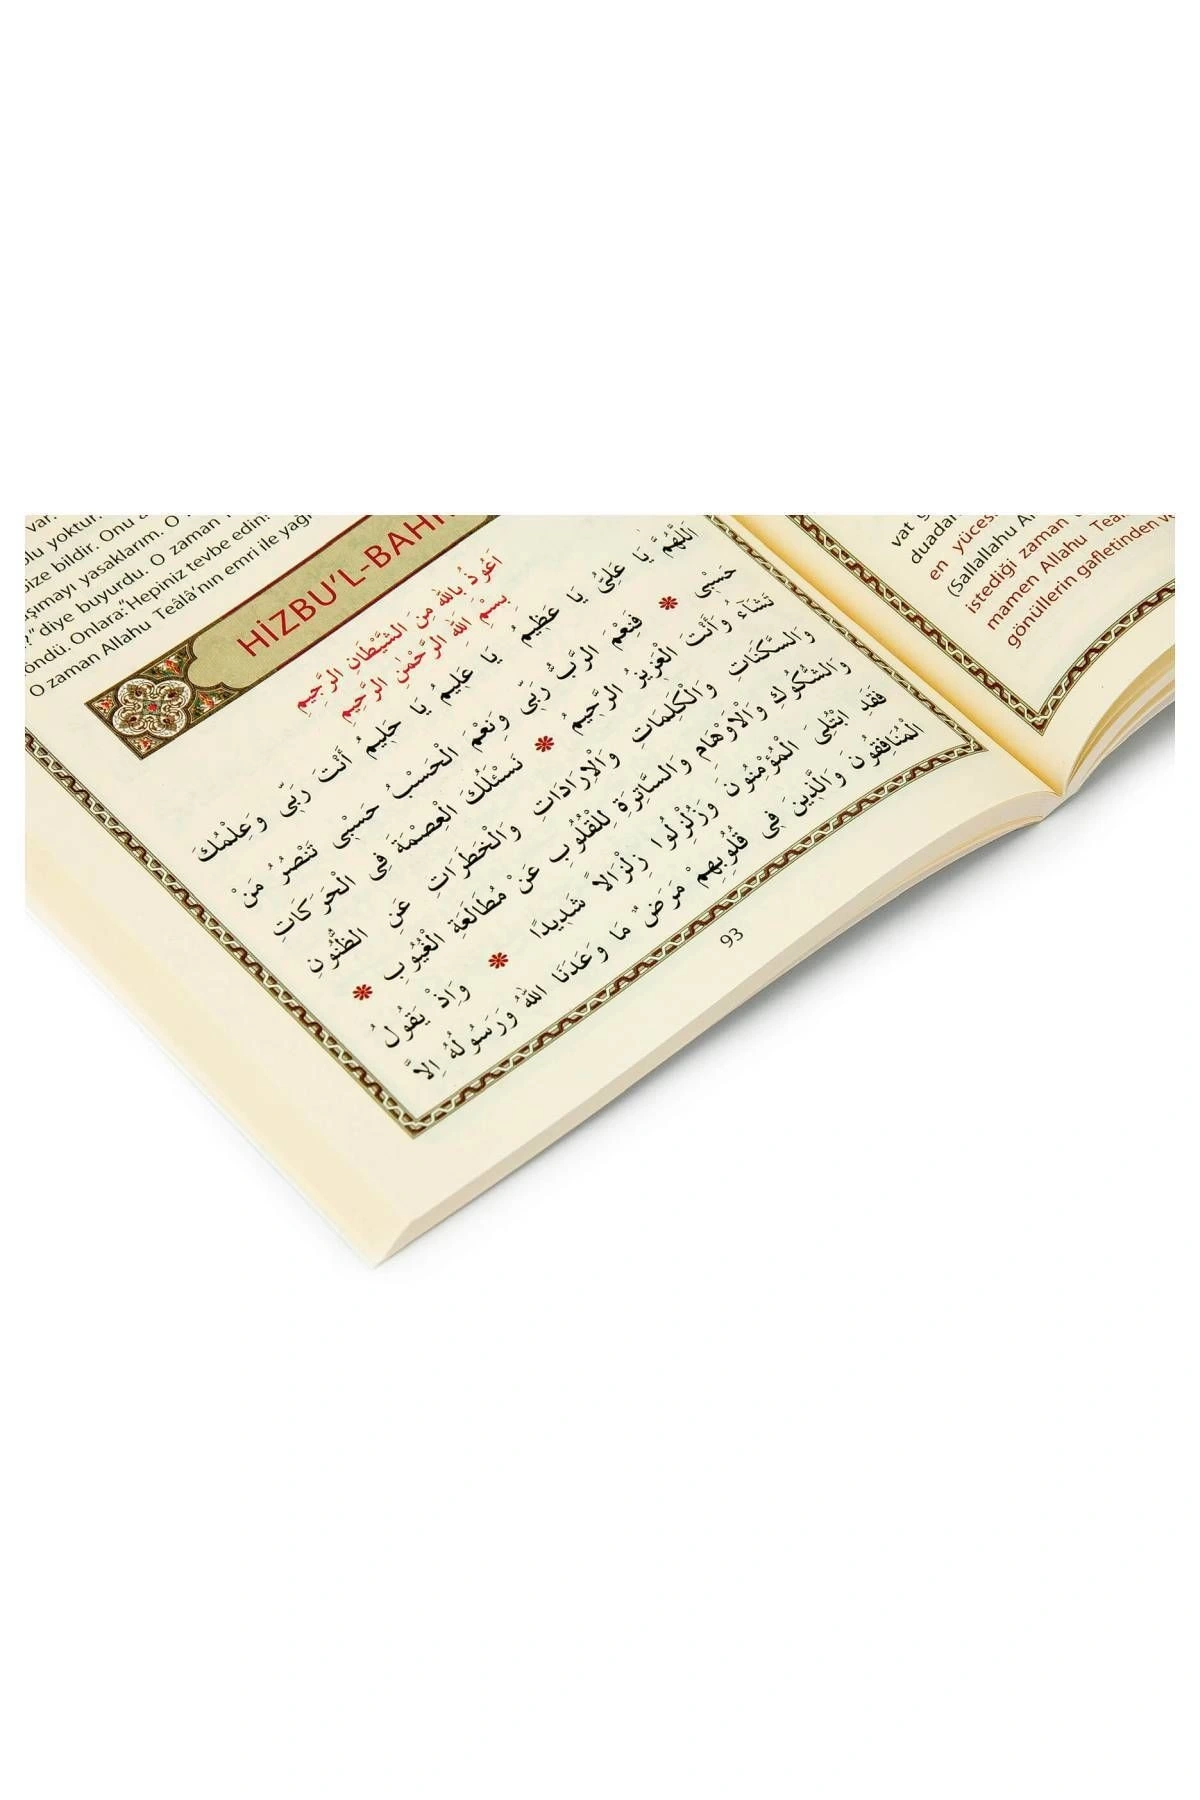 var.
olu yoktur. Onu
bize bildir. Onu a
aşımayı yasaklarım. O
?" diye buyurdu. O zaman
öndü. Onlara:"Hepiniz tevbe edin!
O zaman Alllahu Teâlâ'nın emri ile yağı
HİZBU'L-BAHR
اَعُوذُ بِاللّٰهِ مِنَ الشَّيْطَانِ الرَّجِيمِ
بِسْمِ اللّٰهِ الرَّحْمٰنِ الرَّحِيمِ
اَللّٰهُمَّ يَا عَلِىُّ يَا عَظِيمُ يَا عَلِيمُ يَا حَلِيمُ اَنْتَ رَبِّى وَعِلْمُكَ
حَسْبِى ❋ فَنِعْمَ الرَّبُّ رَبِّى وَنَعْمَ الْحَسْبُ حَسْبِى تَنْصُرُ مَنْ
تَشَاءُ وَاَنْتَ الْعَزِيزُ الرَّحِيمُ ❋ نَسْئَلُكَ الْعِصْمَةَ فِى الْحَرَكَاتِ
وَالسَّكَنَاتِ وَالْكَلِمَاتِ وَالْاِرَادَاتِ وَالْخَطَرَاتِ عَنِ الظُّنُونِ
وَالشُّكُوكِ وَالْاَوْهَامِ وَالسَّاتِرَةِ لِلْقُلُوبِ عَنْ مُطَالَعَةِ الْغُيُوبِ ❋
فَقَدِ ابْتُلِىَ الْمُؤْمِنُونَ وَزُلْزِلُوا زِلْزَالاً شَدِيدًا ❋ وَاِذْ يَقُولُ
الْمُنَافِقُونَ وَالَّذِينَ فِى قُلُوبِهِمْ مَرَضٌ مَا وَعَدَنَا اللّٰهُ وَرَسُولُهُ اِلاَّ
93
vat
duadar
en yüces
(Sallallahu A
istediği zaman
mamen Allahu Teâ
gönüllerin gafletinden ve